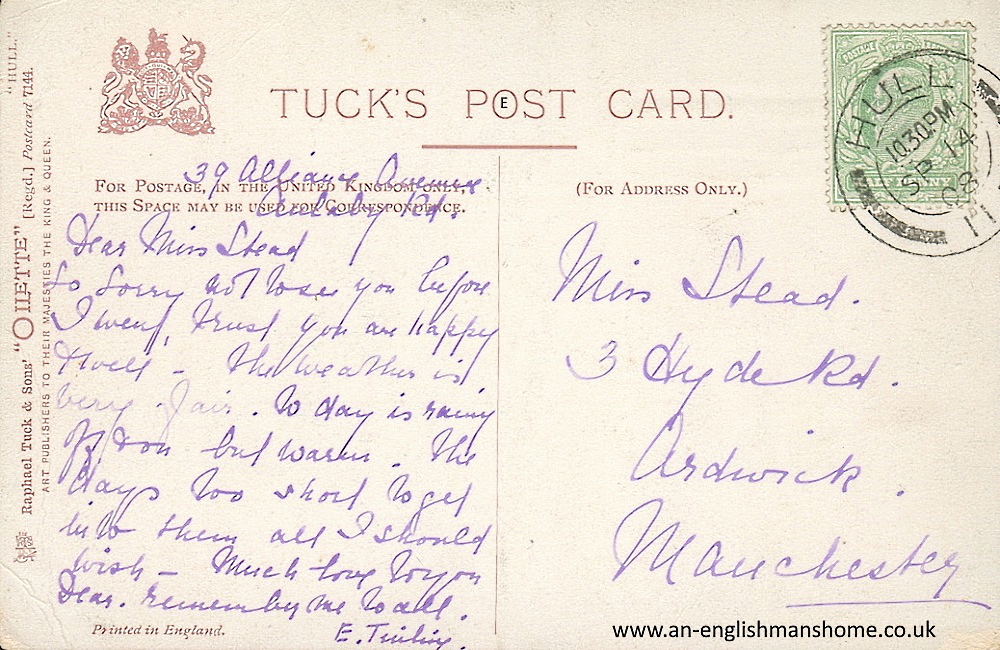 TUCK'S POST CARD.
E
FOR POSTAGE, IN THE UNITED KINGDOM ONLY,
THIS SPACE MAY BE USED FOR CORRESPONDENCE.
(FOR ADDRESS ONLY.)
39 Alliance Avenue
Anlaby Rd.
Dear Miss Stead
So Sorry not to see you before
I went, trust you are happy
& well – The weather is
very fair. To day is rainy
off & on but warm. The
days too short to get
into them all I should
wish – Much love to you
Dear. remember me to all.
E.
Printed in England.
Miss Stead.
3 Hyde Rd.
Ardwick.
Manchester
HULL
10.30 PM
SP 14
08
POSTAGE
HALFPENNY
"HULL."
Raphael Tuck & Sons' "OILETTE" [Regd.] Postcard 7144.
ART PUBLISHERS TO THEIR MAJESTIES THE KING & QUEEN.
www.an-englishmanshome.co.uk